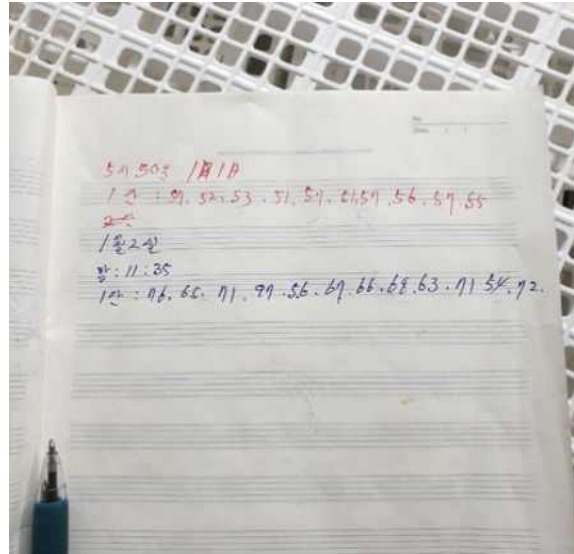 5시 50분 1월 1일
1안 : 57. 52. 53. 51. 57. 61. 57. 56. 57. 55
1월 2일
밤 : 11 : 35
1안 : 76. 65. 71. 97. 56. 67. 66. 68. 63. 71 54. 72.